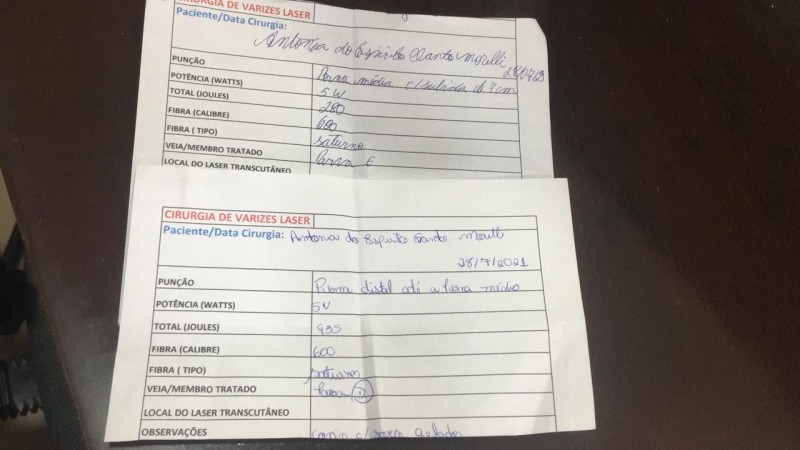 CIRURGIA DE VARIZES LASER
Paciente/Data Cirurgia:
Antonia do Espirito Santo Morelli
PUNÇÃO Perna média c/subida de 7cm
POTÊNCIA (WATTS) 5W
TOTAL (JOULES) 280
FIBRA (CALIBRE) 600
FIBRA ( TIPO) saturno
VEIA/MEMBRO TRATADO Parva E
LOCAL DO LASER TRANSCUTÂNEO
CIRURGIA DE VARIZES LASER
Paciente/Data Cirurgia: Antonia do Espirito Santo Morelli
28/7/2021
PUNÇÃO Perna distal até a perna médio
POTÊNCIA (WATTS) 5W
TOTAL (JOULES) 935
FIBRA (CALIBRE) 600
FIBRA ( TIPO)
VEIA/MEMBRO TRATADO Parva D
LOCAL DO LASER TRANSCUTÂNEO
OBSERVAÇÕES c/soro gelado